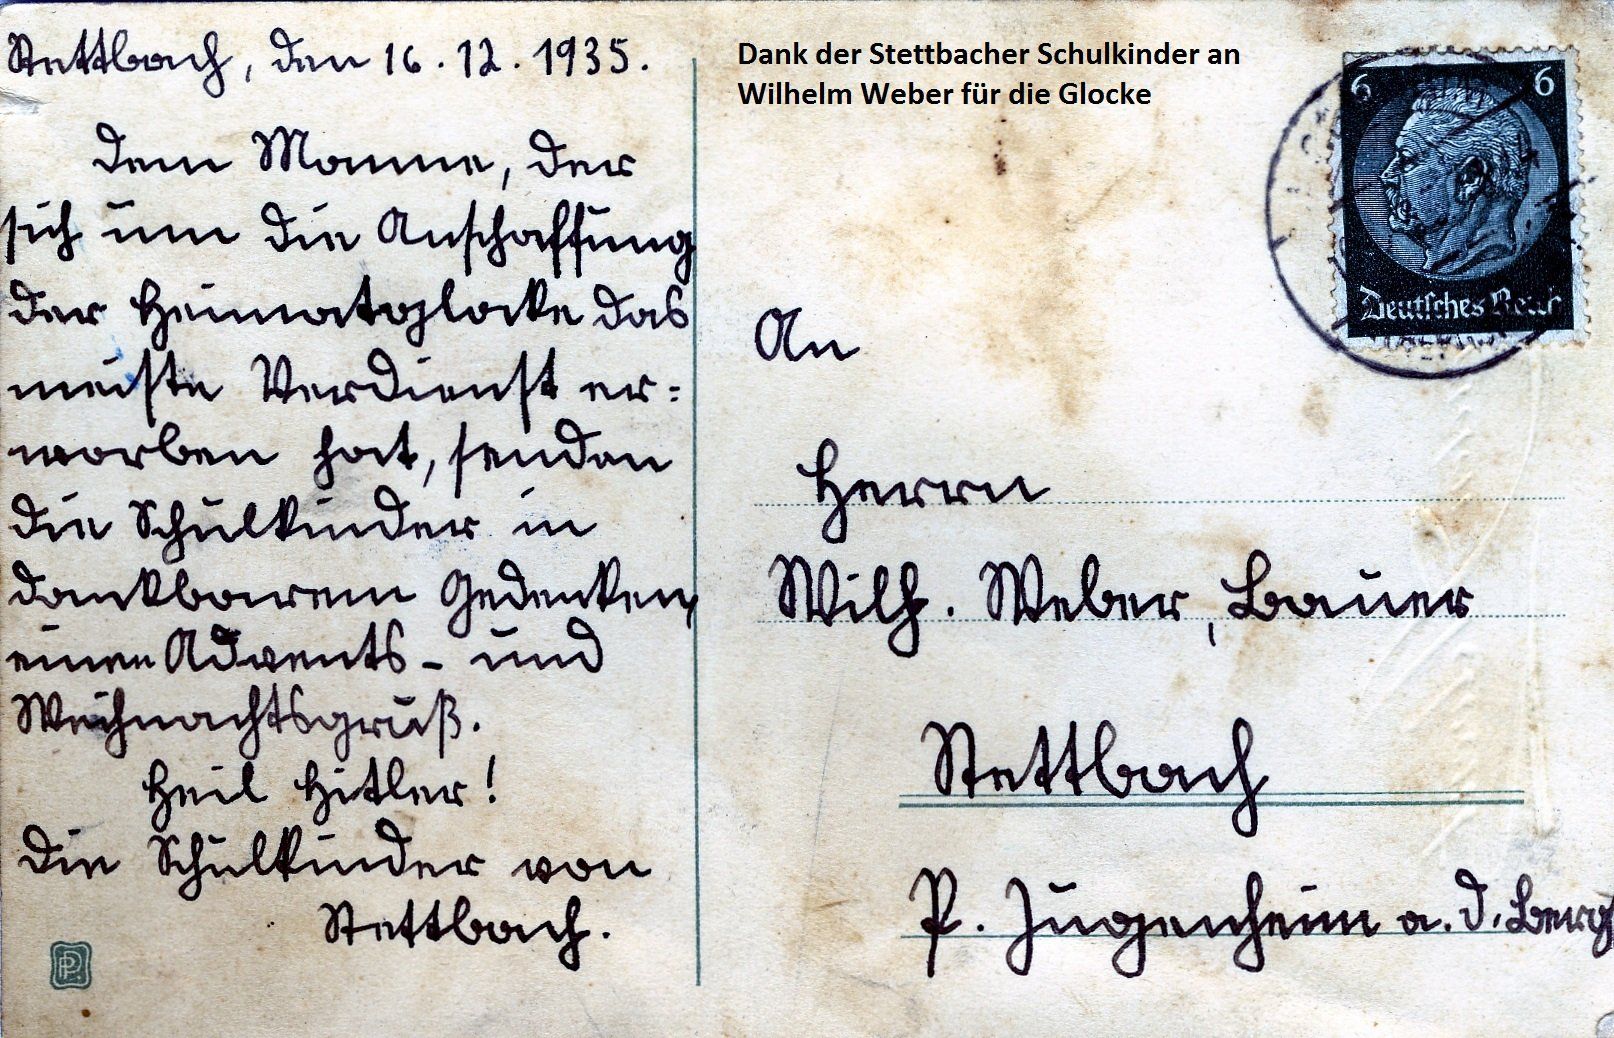 Stettbach, den 16.12.1935.
Dem Manne, der
sich um die Anschaffung
der Heimatglocke das
meiste Verdienst er=
worben hat, senden
die Schulkinder in
dankbarem Gedenken,
einen Advents- und
Weihnachtsgruß.
Heil Hitler!
Die Schulkinder von
Stettbach.
Dank der Stettbacher Schulkinder an
Wilhelm Weber für die Glocke
6 6
Deutsches Reich
An
Herrn
Wilh. Weber, Bauer
Stettbach
P. Jugenheim a. d. Berg